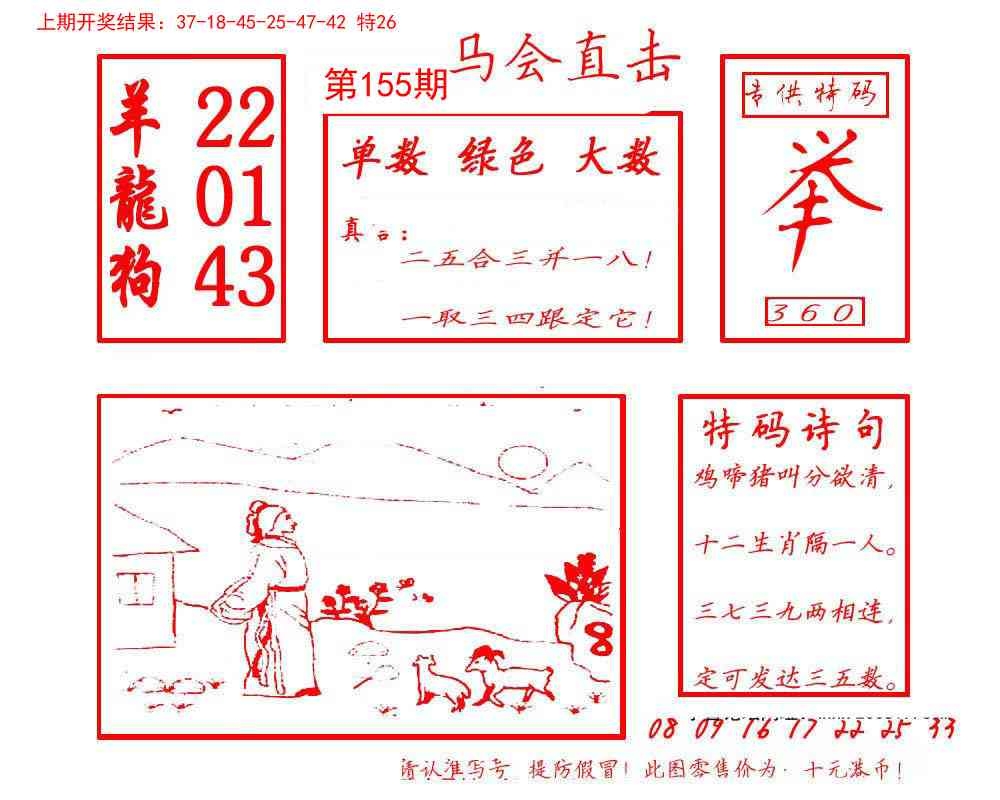 上期开奖结果：37-18-45-25-47-42 特26
马会直击
第155期
羊 22
龍 01
狗 43
单数 绿色 大数
真言：
二五合三并一八！
一取三四跟定它！
专供特码
举
360
8
特码诗句
鸡啼猪叫分欲清，
十二生肖隔一人。
三七三九两相连，
定可发达三五数。
08 09 16 17 22 25 33
请认准写号 提防假冒！此图零售价为·十元港币！